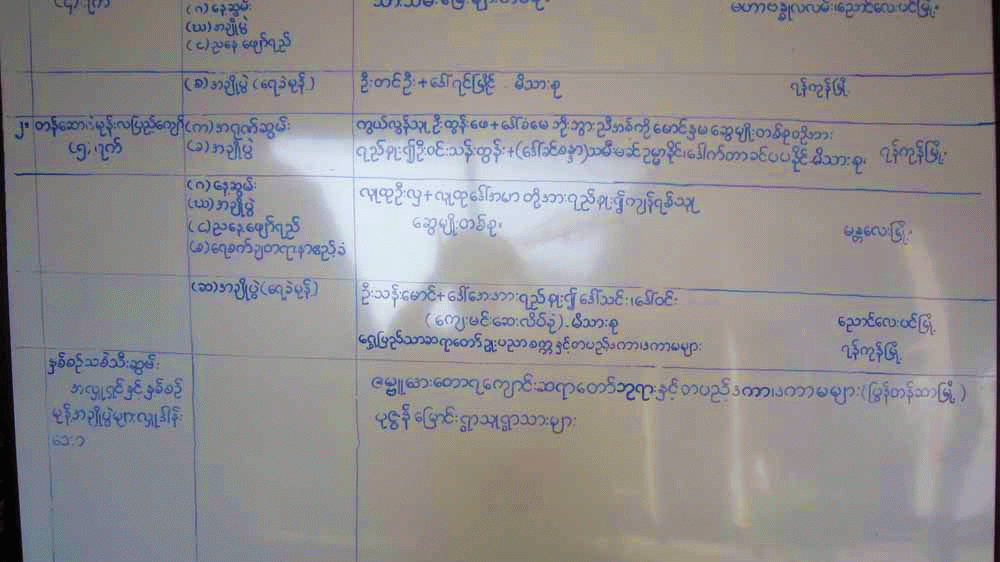 (၄)ရက်
(ဂ)နေ့ဆွမ်း
မဟာဗန္ဓုလလမ်း၊ညောင်လေးပင်မြို့။
(ဃ)အချိုပွဲ
(င)ညနေဖျော်ရည်
(စ)အချိုပွဲ(ရေခဲမုန့်) ဦးတင်ဦး+ဒေါ်ရင်မြိုင် . မိသားစု ရန်ကုန်မြို့
၂။ တန်ဆောင်မုန်းလပြည့်ကျော် (က)အရုဏ်ဆွမ်း ကွယ်လွန်သူ ဦးထွန်းဖေ+ဒေါ်ခံမေ ဘိုးဘွားညီအစ်ကိုမောင်နှမ ဆွေမျိုးတစ်စုတို့အား
(၅)ရက် (ခ)အချိုပွဲ ရည်စူး၍ဦးဝင်းသန်းထွန်း+(ဒေါ်ခင်စန္ဒာ)သမီးမဆင်ဥမ္မာနိုင်၊ဒေါက်တာခင်ပပနိုင်.မိသားစု။ ရန်ကုန်မြို့။
(ဂ)နေ့ဆွမ်း လူထုဦးလှ+လူထုဒေါ်အမာ တို့အားရည်စူး၍ကျန်ရစ်သူ
(ဃ)အချိုပွဲ
(င)ညနေဖျော်ရည် ဆွေမျိုးတစ်စု။ မန္တလေးမြို့။
(စ)ရေစက်ချတရားနာဧည့်ခံ
(ဆ)အချိုပွဲ(ရေခဲမုန့်) ဦးသန်းမောင်+ဒေါ်အေးအားရည်စူး၍ ဒေါ်သင်း၊ဒေါ်ဝင်း
(ကျေးမင်းဆေးလိပ်ခုံ).မိသားစု ညောင်လေးပင်မြို့
ရွှေပြည်သာဆရာတော်ဦးပညာစက္ကနှင့်တပည့်ဒကာ၊ဒကာမများ ရန်ကုန်မြို့
နှစ်စဉ်သစ်သီးဆွမ်း
အလှူရှင်နှင့်နှစ်စဉ် ဇမ္ဗူအေးတောရကျောင်းဆရာတော်ဘုရားနှင့်တပည့်ဒကာ၊ဒကာမများ(ပြွန်တန်ဆာမြို့)
မုန့်အချိုပွဲများလှူဒါန်း ပုဇွန်မြောင်းရွာသူရွာသားများ